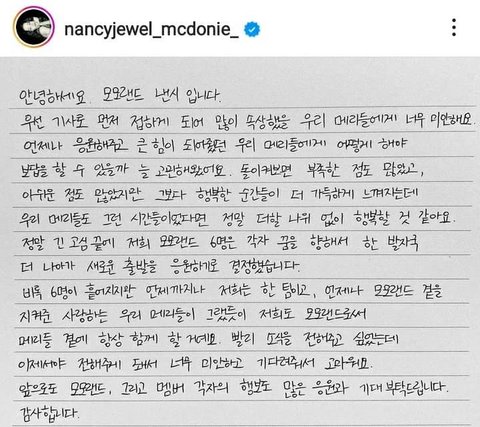 nancyjewel_mcdonie_
안녕하세요. 모모랜드 낸시 입니다.
우선 기사로 먼저 접하게 되어 많이 속상했을 우리 메리들에게 너무 미안해요.
언제나 응원해주고 큰 힘이 되어줬던 우리 메리들에게 어떻게 해야
보답을 할 수 있을까 늘 고민해왔어요. 돌이켜보면 부족한 점도 많았고,
아쉬운 점도 많았지만 그보다 행복한 순간들이 더 가득하게 느껴지는데
우리 메리들도 그런 시간들이었다면 정말 더할 나위 없이 행복할 것 같아요.
정말 긴 고심 끝에 저희 모모랜드 6명은 각자 꿈을 향해서 한 발자국
더 나아가 새로운 출발을 응원하기로 결정했습니다.
비록 6명이 흩어지지만 언제까지나 저희는 한 팀이고, 언제나 모모랜드 곁을
지켜준 사랑하는 우리 메리들이 그랬듯이 저희도 모모랜드로써
메리들 곁에 항상 함께 할 거예요. 빨리 소식을 전해주고 싶었는데
이제서야 전해주게 돼서 너무 미안하고 기다려줘서 고마워요.
앞으로도 모모랜드, 그리고 멤버 각자의 행보도 많은 응원과 기대 부탁드립니다.
감사합니다.